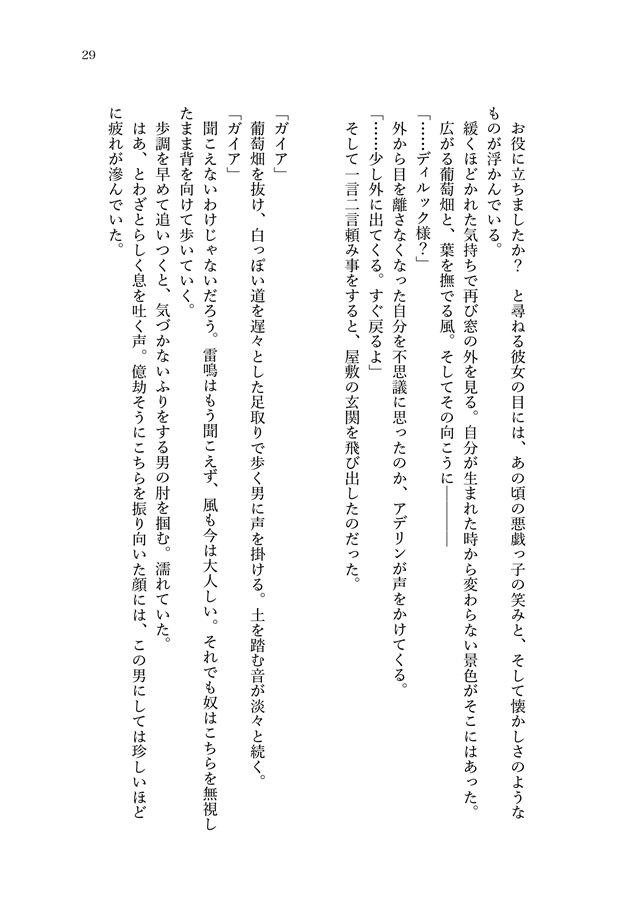 29
お役に立ちましたか？　と尋ねる彼女の目には、あの頃の悪戯っ子の笑みと、そして懐かしさのような
ものが浮かんでいる。
緩くほどかれた気持ちで再び窓の外を見る。自分が生まれた時から変わらない景色がそこにはあった。
広がる葡萄畑と、葉を撫でる風。そしてその向こうに――――
「……ディルック様？」
外から目を離さなくなった自分を不思議に思ったのか、アデリンが声をかけてくる。
「……少し外に出てくる。すぐ戻るよ」
そして一言二言頼み事をすると、屋敷の玄関を飛び出したのだった。
「ガイア」
葡萄畑を抜け、白っぽい道を遅々とした足取りで歩く男に声を掛ける。土を踏む音が淡々と続く。
「ガイア」
聞こえないわけじゃないだろう。雷鳴はもう聞こえず、風も今は大人しい。それでも奴はこちらを無視し
たまま背を向けて歩いていく。
歩調を早めて追いつくと、気づかないふりをする男の肘を掴む。濡れていた。
はあ、とわざとらしく息を吐く声。億劫そうにこちらを振り向いた顔には、この男にしては珍しいほど
に疲れが滲んでいた。